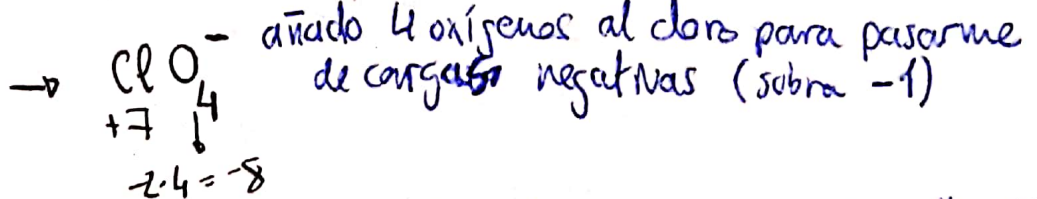 → ClO₄⁻ añado 4 oxígenos al cloro para pasarme
de cargas negativas (sobra -1)
+7
-2·4=-8